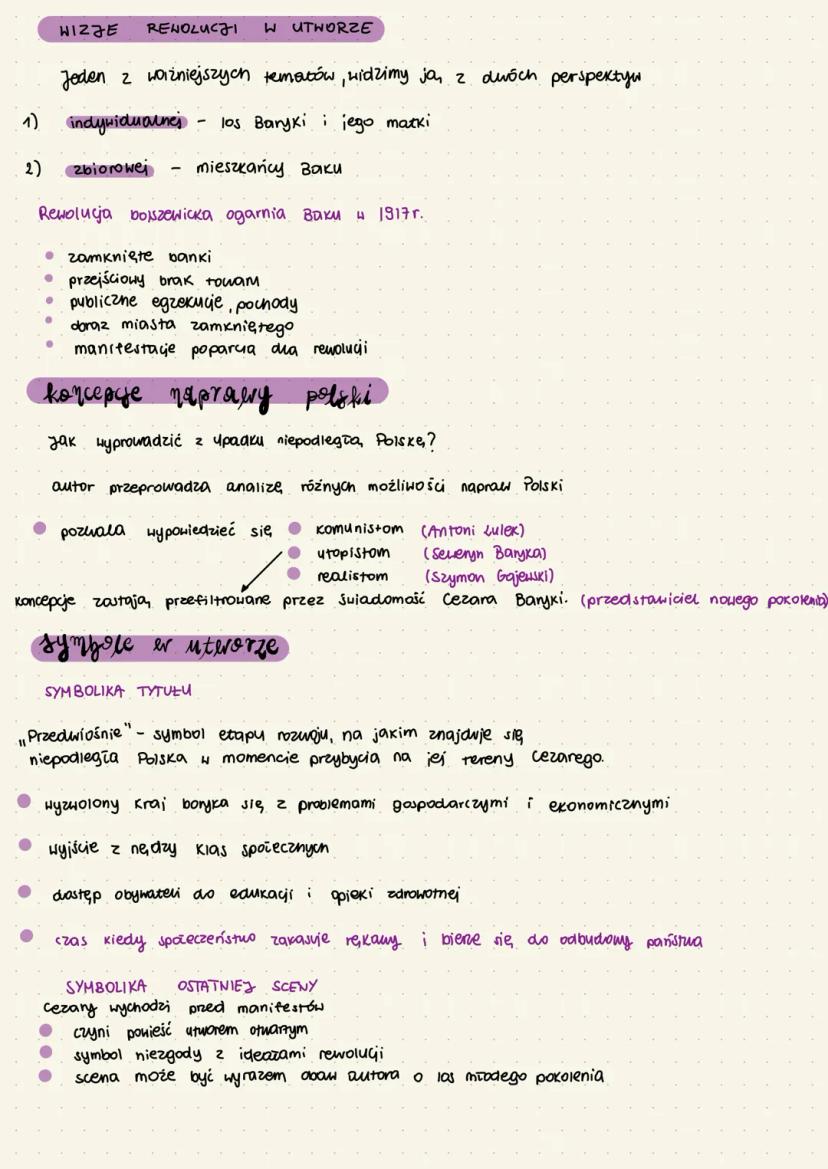 WIZJE REWOLUCJI W UTWORZE
Jeden z ważniejszych tematów, widzimy ją z dwóch perspektyw
1) indywidualnej - los Baryki i jego matki
2) zbiorowej - mieszkańcy Baku
Rewolucja bolszewicka ogarnia Baku w 1917r.
• zamknięte banki
• przejściowy brak towaru
• publiczne egzekucje, pochody
• obraz miasta zamkniętego
• manifestacje poparcia dla rewolucji
koncepcje naprawy polski
Jak wyprowadzić z upadku niepodległą Polskę?
autor przeprowadza analizę różnych możliwości napraw Polski
• pozwala wypowiedzieć się • komunistom (Antoni Lulek)
• utopistom (Seweryn Baryka)
• realistom (Szymon Gajewski)
koncepcje zostają przefiltrowane przez świadomość Cezara Baryki. (przedstawiciel nowego pokolenia)
symbole w utworze
SYMBOLIKA TYTUŁU
„Przedwiośnie" - symbol etapu rozwoju, na jakim znajduje się
niepodległa Polska w momencie przybycia na jej tereny Cezarego.
• wyzwolony kraj boryka się z problemami gospodarczymi i ekonomicznymi
• wyjście z nędzy klas społecznych
• dostęp obywateli do edukacji i opieki zdrowotnej
• czas kiedy społeczeństwo zakasuje rękawy i bierze się do odbudowy państwa
SYMBOLIKA OSTATNIEJ SCENY
Cezary wychodzi przed manifestów
• czyni powieść utworem otwartym
• symbol niezgody z ideałami rewolucji
• scena może być wyrazem obaw autora o los młodego pokolenia